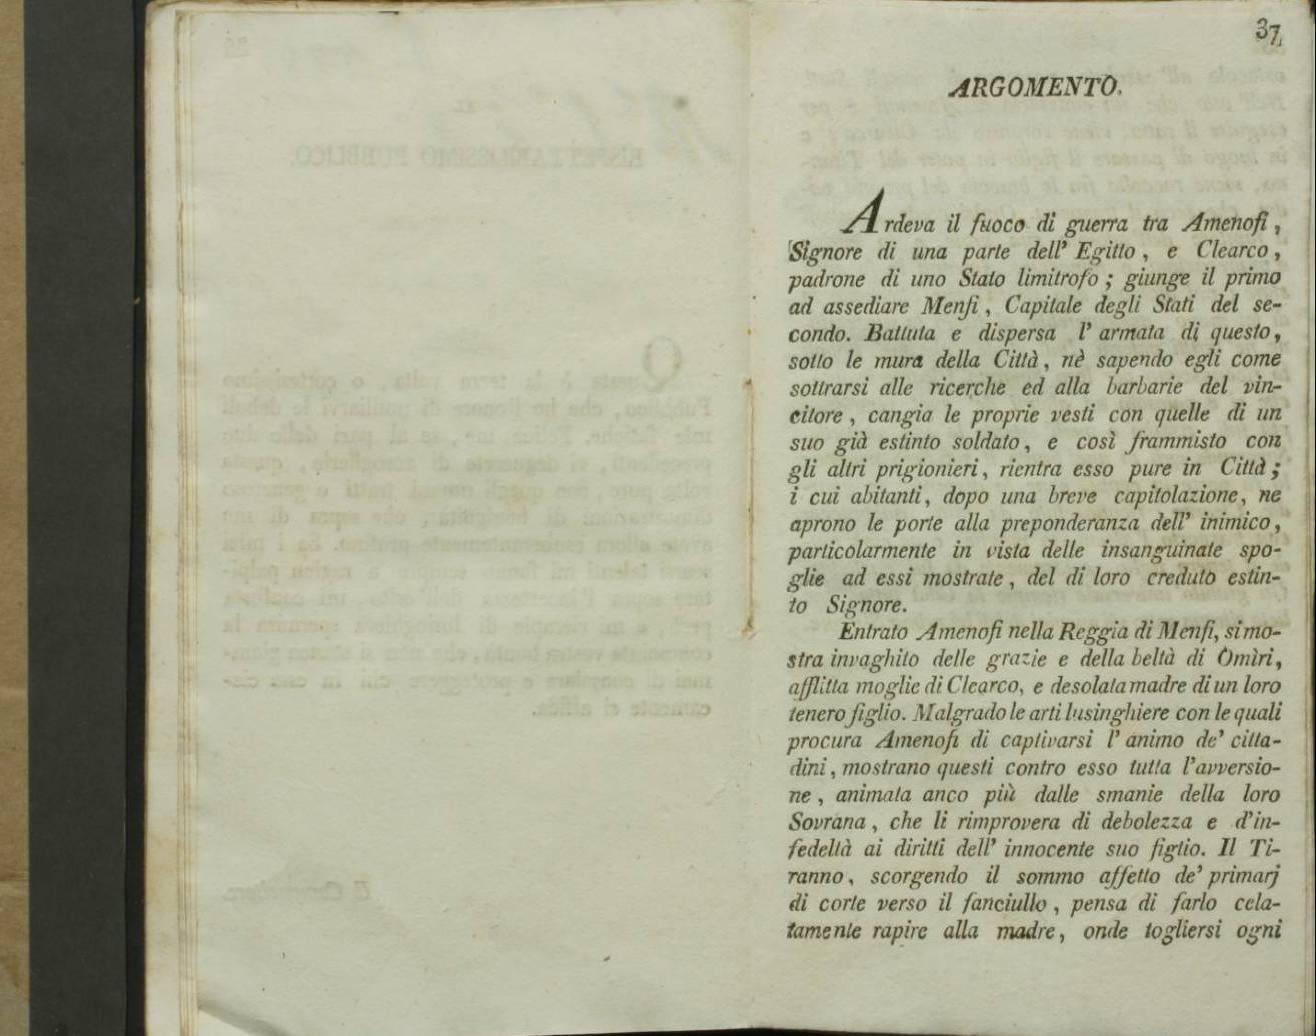 37
ARGOMENTO.
Ardeva il fuoco di guerra tra Amenofi,
Signore di una parte dell' Egitto, e Clearco,
padrone di uno Stato limitrofo; giunge il primo
ad assediare Menfi, Capitale degli Stati del se-
condo. Battuta e dispersa l' armata di questo,
sotto le mura della Città, nè sapendo egli come
sottrarsi alle ricerche ed alla barbarie del vin-
citore, cangia le proprie vesti con quelle di un
suo già estinto soldato, e così frammisto con
gli altri prigionieri, rientra esso pure in Città;
i cui abitanti, dopo una breve capitolazione, ne
aprono le porte alla preponderanza dell' inimico,
particolarmente in vista delle insanguinate spo-
glie ad essi mostrate, del di loro creduto estin-
to Signore.
Entrato Amenofi nella Reggia di Menfi, si mo-
stra invaghito delle grazie e della beltà di Òmìri,
afflitta moglie di Clearco, e desolata madre di un loro
tenero figlio. Malgrado le arti lusinghiere con le quali
procura Amenofi di captivarsi l' animo de' citta-
dini, mostrano questi contro esso tutta l'avversio-
ne, animata anco più dalle smanie della loro
Sovrana, che li rimprovera di debolezza e d'in-
fedeltà ai diritti dell' innocente suo figlio. Il Ti-
ranno, scorgendo il sommo affetto de' primarj
di corte verso il fanciullo, pensa di farlo cela-
tamente rapire alla madre, onde togliersi ogni